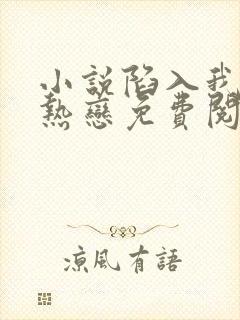 小說陷入我
熱戀免費閱
涼風有語